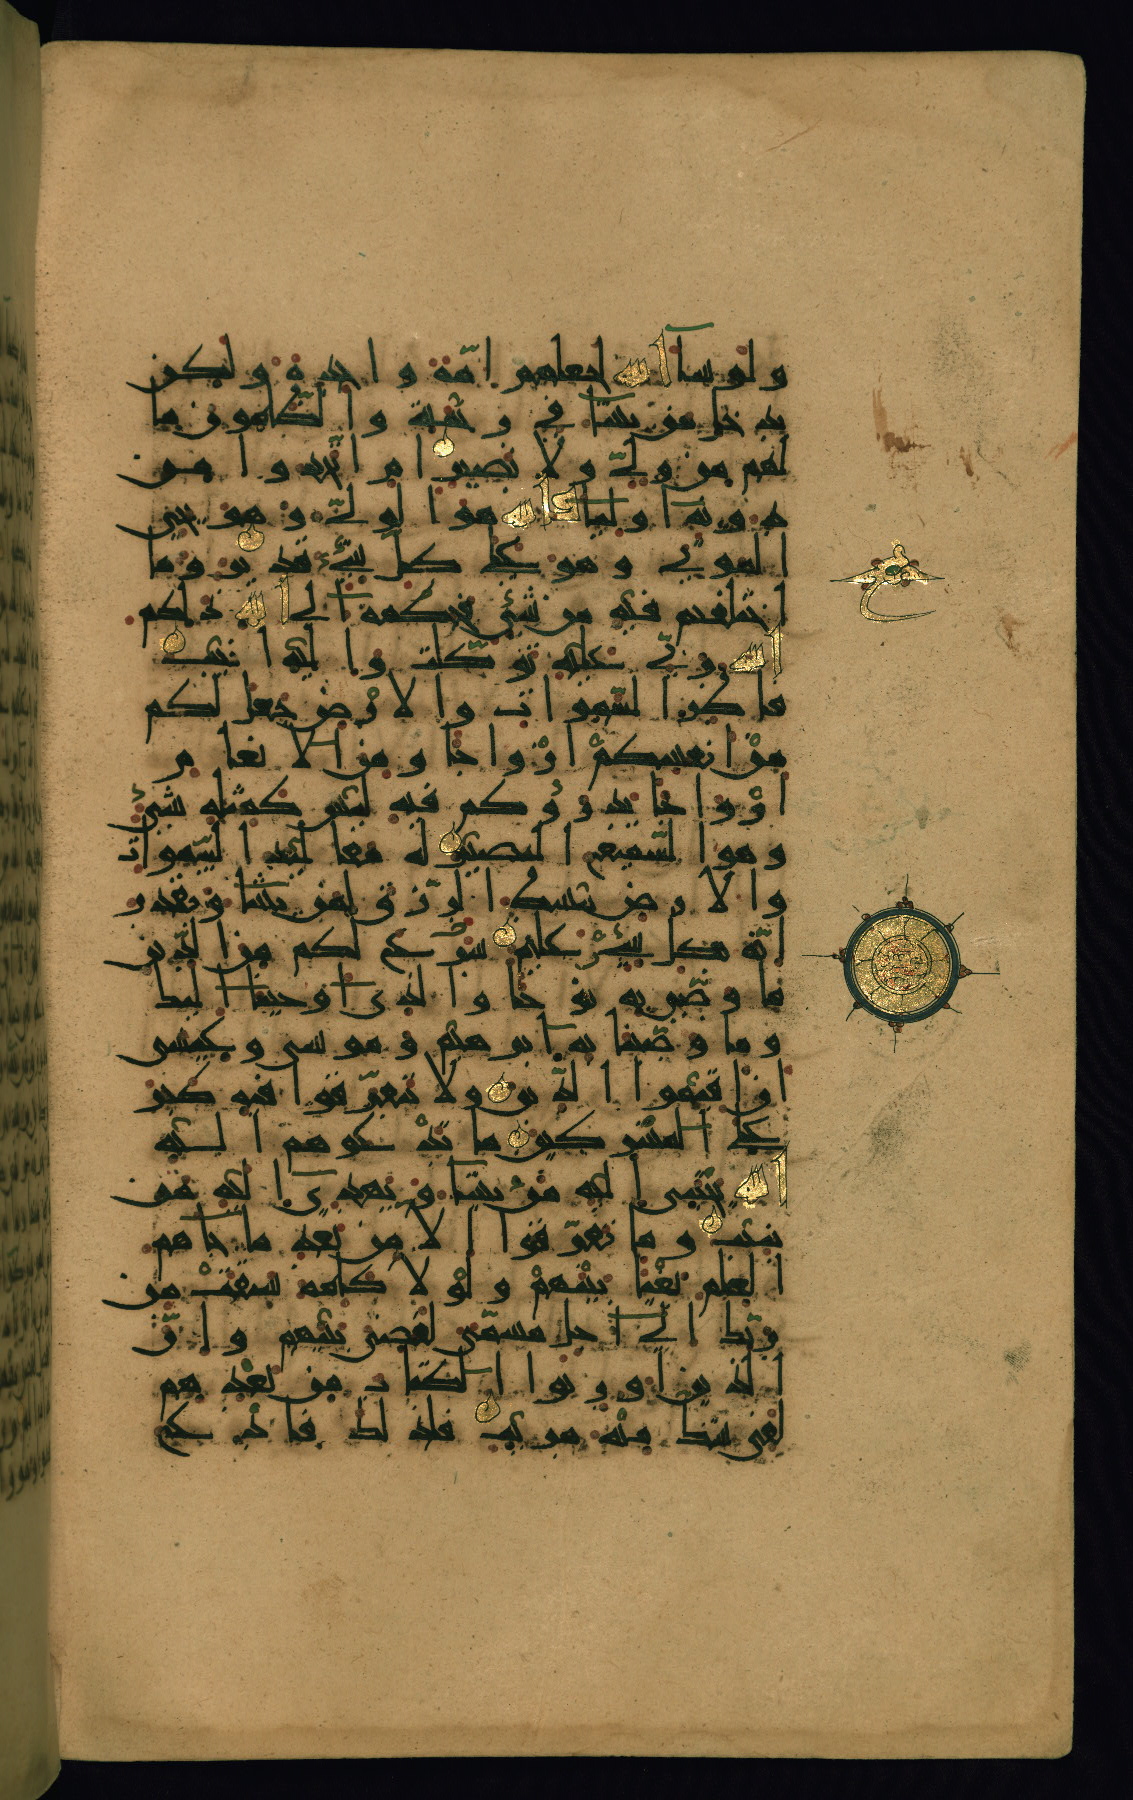 ولو شآ الله لجعلهم امّة واحدة ولكن
يدخل من يشآ في رحمته والظّلمون ما
لهم من وليّ ولا نصير ام اتّخذوا من
دونه اوليا فالله هوا لوليّ وهو يحي
الموتى وهو على كلّ شيء قدير وما
اختلفتم فيه من شيء فحكمه الى الله ذلكم
الله ربّي عليه توكّلت واليه انيب
فاطر السّموات والارض جعل لكم
من انفسكم ازواجا ومن الانعام
ازواجا يذرؤكم فيه ليس كمثله شيء
وهو السّميع البصير له مقاليد السّموات
والارض يبسط الرّزق لمن يشآ ويقدر
انّه بكل شيء عليم شرع لكم من الدّين
ما وصّى به نوحا والذي اوحينا اليك
وما وصّينا به ابرهيم وموسى وعيسى
ان اقيموا الدّين ولا تتفرّقوا فيه كبر
على المشركين ما تدعوهم اليه
الله يجتبي اليه من يشآ ويهدي اليه من
ينيب وما تفرّقوا الا من بعد ما جاهم
العلم بغيا بينهم ولولا كلمة سبقت من
ربّك الى اجل مسمّى لقضي بينهم وانّ
الذين اورثوا الكتاب من بعدهم
لفي شك منه مريب فلذلك فادع